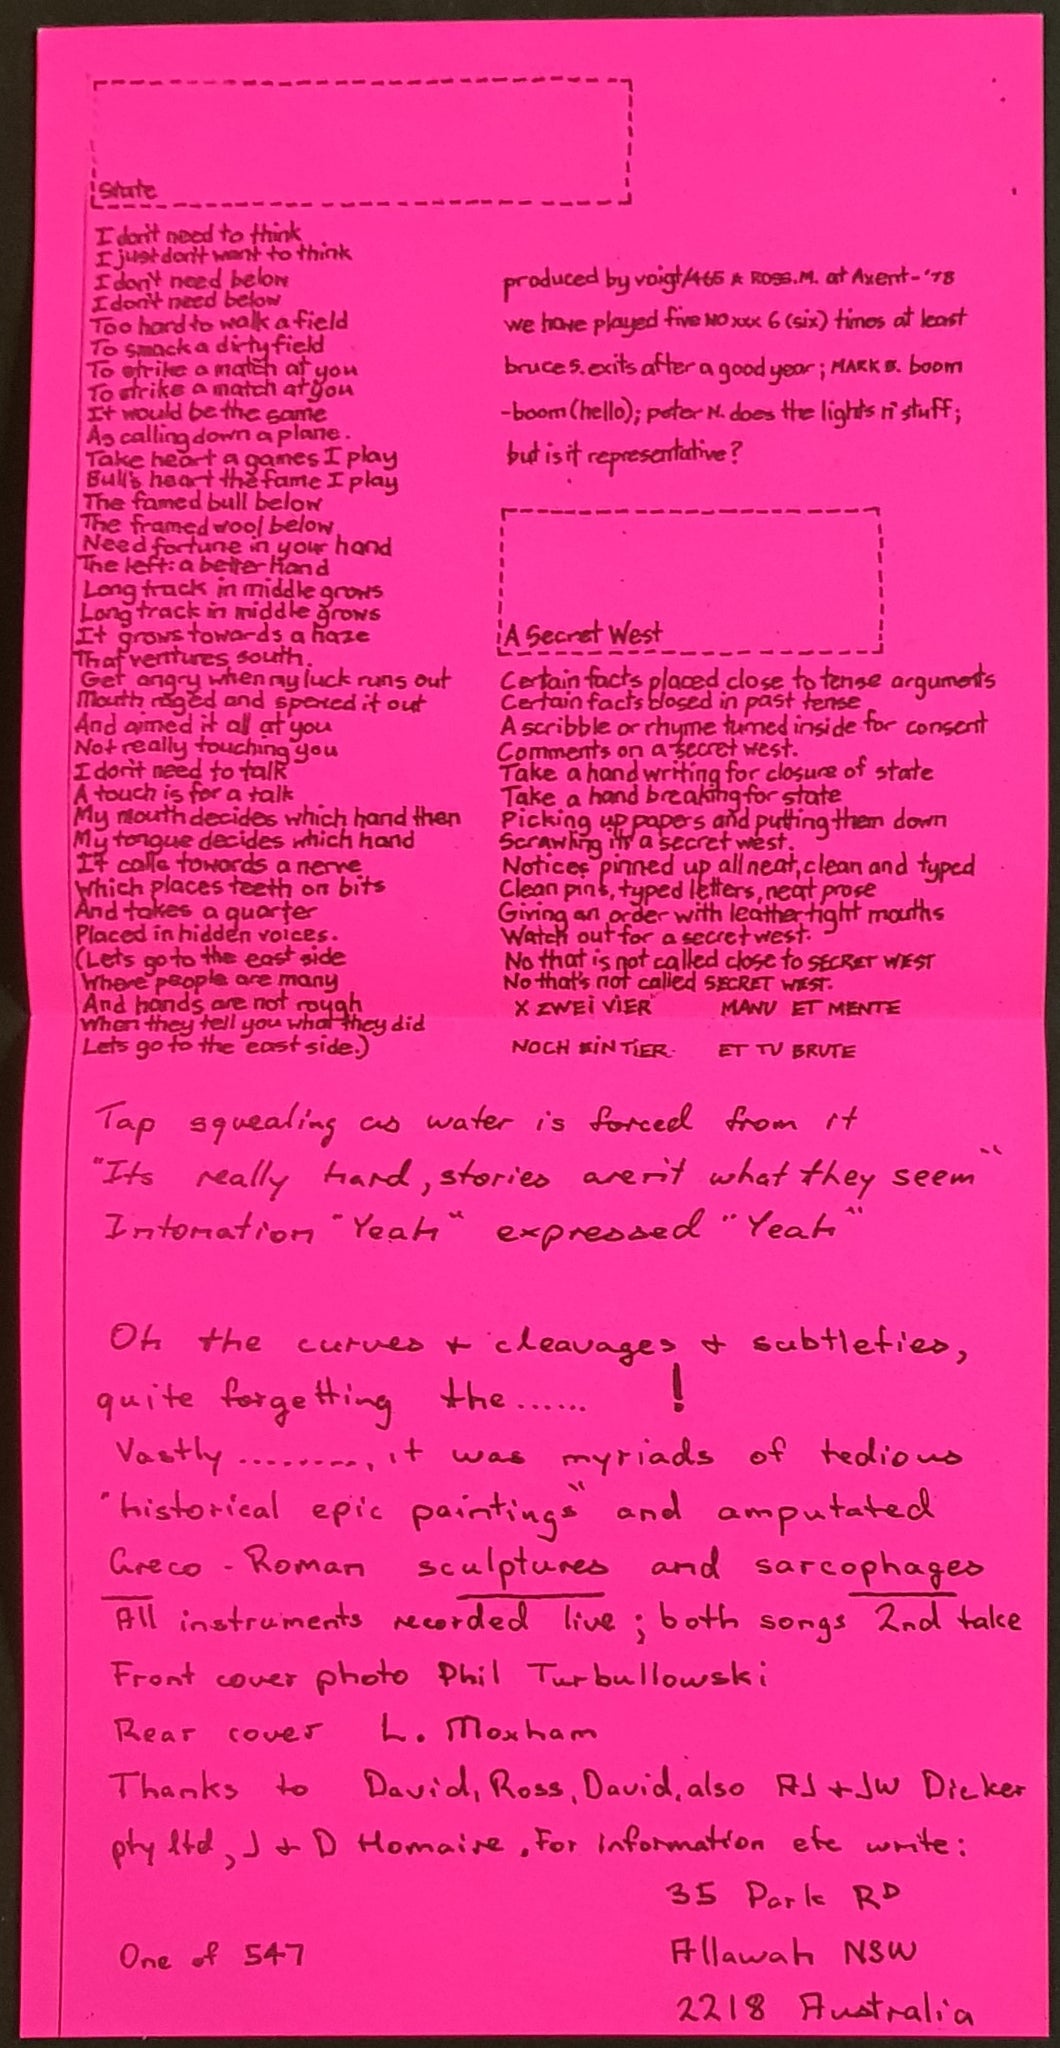 State
I don't need to think
I just don't want to think
I don't need below
I don't need below
Too hard to walk a field
To smack a dirty field
To strike a match at you
To strike a match at you
It would be the same
As calling down a plane.
Take heart a games I play
Bull's heart the fame I play
The famed bull below
The framed wool below
Need fortune in your hand
The left: a better Hand
Long track in middle grows
Long track in middle grows
It grows towards a haze
That ventures south.
Get angry when my luck runs out
Mouth raged and spered it out
And aimed it all at you
Not really touching you
I don't need to talk
A touch is for a talk
My mouth decides which hand then
My tongue decides which hand
It calls towards a nerve
Which places teeth on bits
And takes a quarter
Placed in hidden voices.
(Lets go to the east side
Where people are many
And hands are not rough
When they tell you what they did
Lets go to the east side.)
produced by voigt/465 & ROSS.M. at Axent-'78
we have played five NO xxx 6 (six) times at least
bruce S. exits after a good year; MARK B. boom
-boom (hello); peter N. does the lights n' stuff;
but is it representative?
A Secret West
Certain facts placed close to tense arguments
Certain facts closed in past tense
A scribble or rhyme turned inside for consent
Comments on a secret west.
Take a hand writing for closure of state
Take a hand breaking for state
Picking up papers and putting them down
Scrawling in a secret west.
Notices pinned up all neat, clean and typed
Clean pins, typed letters, neat prose
Giving an order with leather tight mouths
Watch out for a secret west.
No that is not called close to SECRET WEST
No that's not called SECRET WEST.
X ZWEI VIER MANU ET MENTE
NOCH EIN TIER. ET TU BRUTE
Tap squealing as water is forced from it
"Its really hard, stories aren't what they seem"
Intonation "Yeah" expressed "Yeah"
Oh the curves + cleavages + subtleties,
quite forgetting the...... !
Vastly ........., it was myriads of tedious
"historical epic paintings" and amputated
Greco - Roman sculptures and sarcophages
All instruments recorded live; both songs 2nd take
Front cover photo Phil Turbullowski
Rear cover L. Moxham
Thanks to David, Ross, David, also AJ + JW Dicker
pty ltd, J + D Homaire. For information etc write:
35 Park RD
Allawah NSW
2218 Australia
One of 547